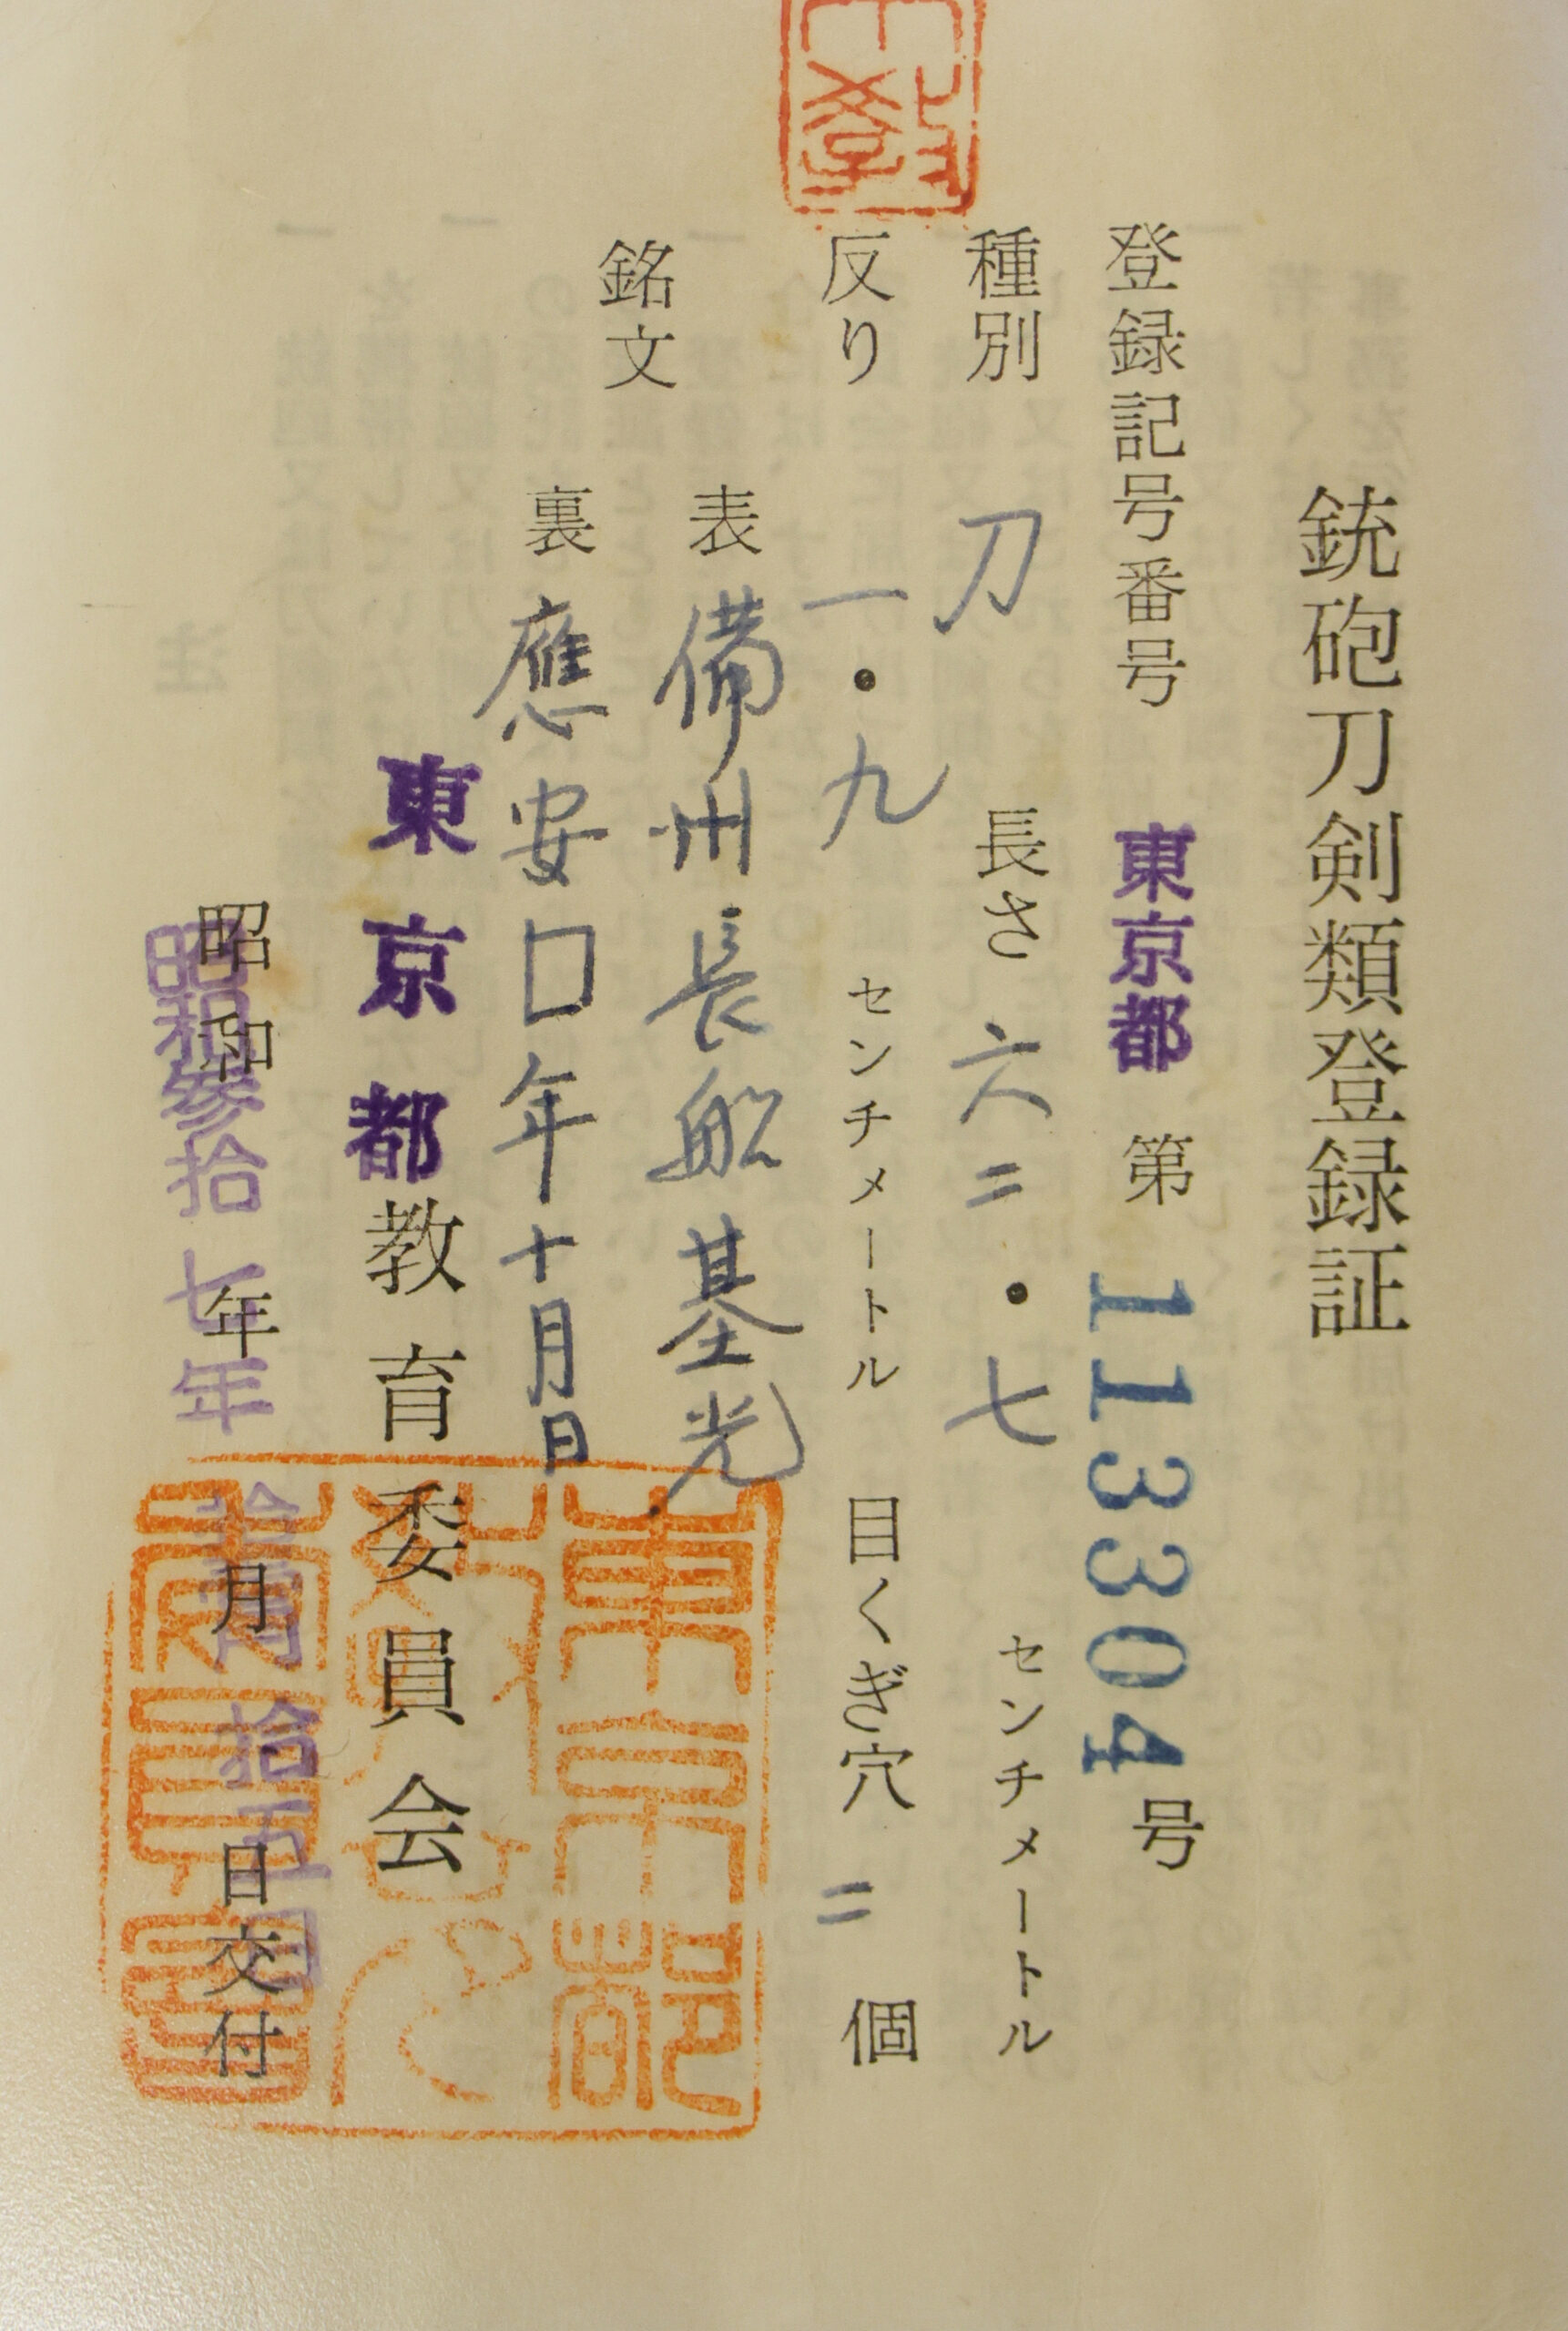 銃砲刀剣類登録証
登録記号番号 東京都 第 113304 号
種別 刀 長さ 六二・七 センチメートル
反り 一・九 センチメートル 目くぎ穴 二 個
銘文
表 備州長船基光
裏 應安口年十月日
東京都教育委員会
昭和 年 月 日交付
昭和参拾七年 拾五日